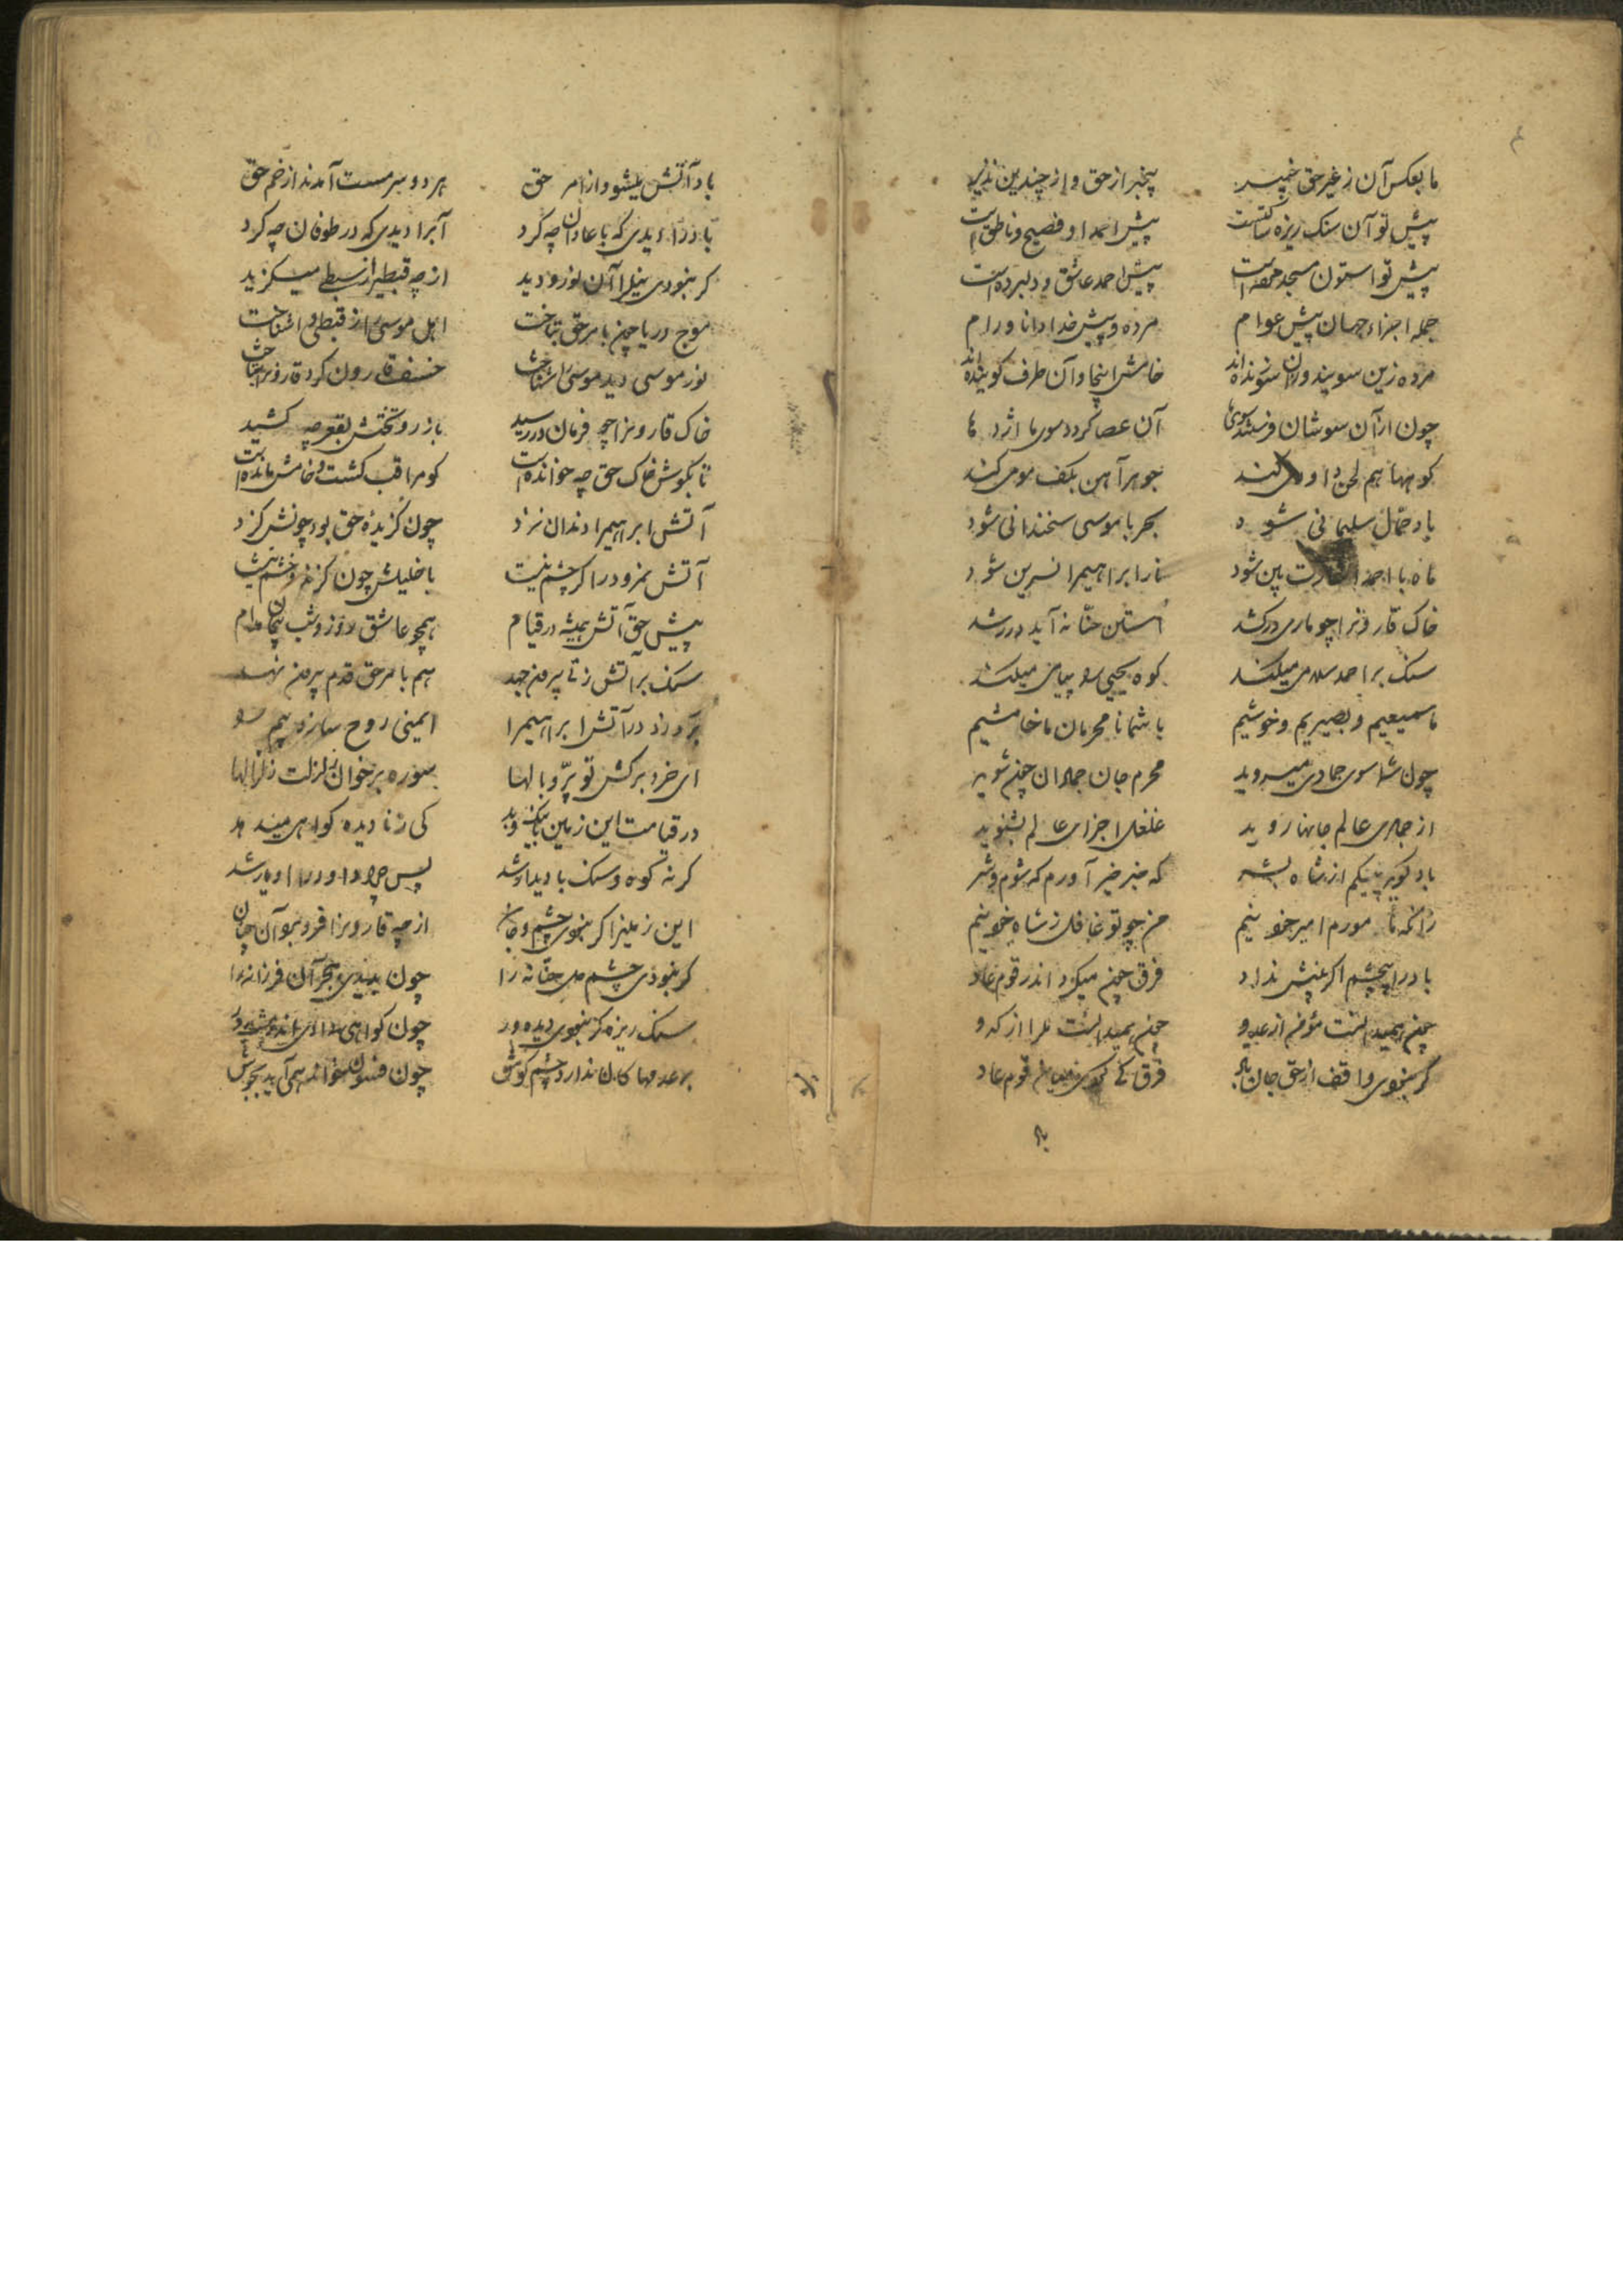 ما بعکس آن ز غیر حق خبیر بیخبر از حق و از چندین نذیر
پیش تو آن سنک ریزه ساکتست پیش احمد او فصیح و ناطق است
پیش تو استون مسجد مرده است پیش احمد عاشق و دلبرده است
جمله اجزاء جهان پیش عوام مرده و پیش خدا دانا و رام
مرده زین سویند وزان سو زنده‌اند خامش اینجا وآن طرف کوینده‌اند
چون از آن سوشان فرستد سوی ما آن عصا کردد سوی ما اژدها
کوهها هم لحن داودی کند جوهر آهن بکف مومی کند
باد حمال سلیمانی شود بحر با موسی سخندانی شود
ماه با احمد اشارت بین شود نار ابراهیمرا نسرین شود
خاک قارونرا چو ماری درکشد استن حنانه آید در رشد
سنک بر احمد سلامی میکند کوه یحیی را پیامی میکند
ما سمیعیم و بصیریم و خوشیم با شما نامحرمان ما خامشیم
چون شما سوی جمادی میروید محرم جان جمادان چون شوید
از جمادی عالم جانها روید غلغل اجزای عالم بشنوید
باد کوید پیکم از شاه بشر که خبر خیر آورم که شوم و شر
زانکه مامورم امیر خود نیم من چو تو غافل ز شاه خود نیم
باد را بیچشم اکر بینش نداد فرق چون میکرد اندر قوم عاد
چون همیدانست مؤمن از عدو چون همیدانست می را از کدو
کر نبودی واقف از حق جان باد فرق کی کردی میان قوم عاد
با
باد آتش میشود از امر حق هر دو سرمست آمدند از خم حق
باد را دیدی که با عادان چه کرد آبرا دیدی که در طوفان چه کرد
کر نبودی نیلرا آن نور و دید از چه قبطیرا ز سبطی میکزید
موج دریا چون بامر حق بتاخت اهل موسی را ز قبطی وا شناخت
نور موسی دید موسی را شناخت خسف قارون کرد قارونرا شناخت
خاک قارونرا چو فرمان در رسید با زر و تختش بقعر چه کشید
تا بکوش خاک حق چه خوانده است کو مراقب کشت و خامش مانده است
آتش ابراهیمرا دندان نزد چون کزیده حق بود چونش کزد
آتش نمرود را کر چشم نیست با خلیلش چون کزند و خشم نیست
پیش حق آتش همیشه در قیام همچو عاشق روز و شب پیچان مدام
سنک بر آتش زنی بیرون جهد هم بامر حق قدم بیرون نهد
برد زد در آتش ابراهیمرا ایمنی روح سازد بیم را
ای خرد برکش تو پر و بالها سوره برخوان زلزلت زلزالها
در قیامت این زمین بر نیک و بد کی ز نادیده کواهیها دهد
کر نه کوه و سنک با دیدار شد پس چرا داود را او یار شد
این زمینرا کر نبودی چشم و جان از چه قارونرا فرو برد آن چنان
کر نبودی چشم دل حنانه را چون بدیدی هجر آن فرزانه را
سنک ریزه کر نبودی دیده ور چون کواهی دادی اندر مشت در